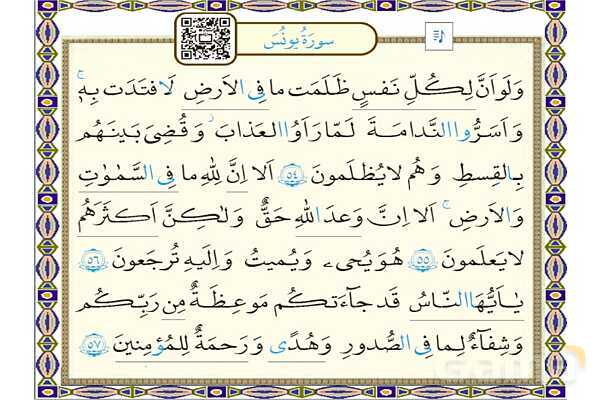 سورة يونس
وَلَو اَنَّ لِكُلِّ نَفسٍ ظَلَمَت ما فِی الاَرضِ لَافتَدَت بِهٖ ۚ
وَ اَسَرُّوا النَّدامَةَ لَمّا رَاَوُا العَذابَ ۖ وَ قُضِیَ بَینَهُم
بِالقِسطِ وَ هُم لا یُظلَمونَ ٥٤ اَلا اِنَّ لِلّٰهِ ما فِی السَّمٰوٰتِ
وَ الاَرضِ ۚ اَلا اِنَّ وَعدَ اللّٰهِ حَقٌّ وَ لٰكِنَّ اَكثَرَهُم
لا یَعلَمونَ ٥٥ هُوَ یُحیٖ وَ یُمیتُ وَ اِلَیهِ تُرجَعونَ ٥٦
یٰاَیُّهَا النّاسُ قَد جاءَتكُم مَوعِظَةٌ مِن رَبِّكُم
وَ شِفاءٌ لِما فِی الصُّدورِ وَ هُدًی وَ رَحمَةٌ لِلمُؤمِنینَ ٥٧